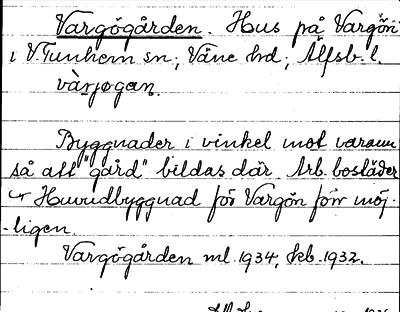 Vargögården. Hus på Vargön
i V. Tunhem sn; Väne hd; Älfsb. l.
vàrjogan.
Byggnader i vinkel mot varann
så att "gård" bildas där. Arb. bostäder
Huvudbyggnad för Vargön förr möj-
-ligen.
Vargögården ml. 1934, kb. 1932.